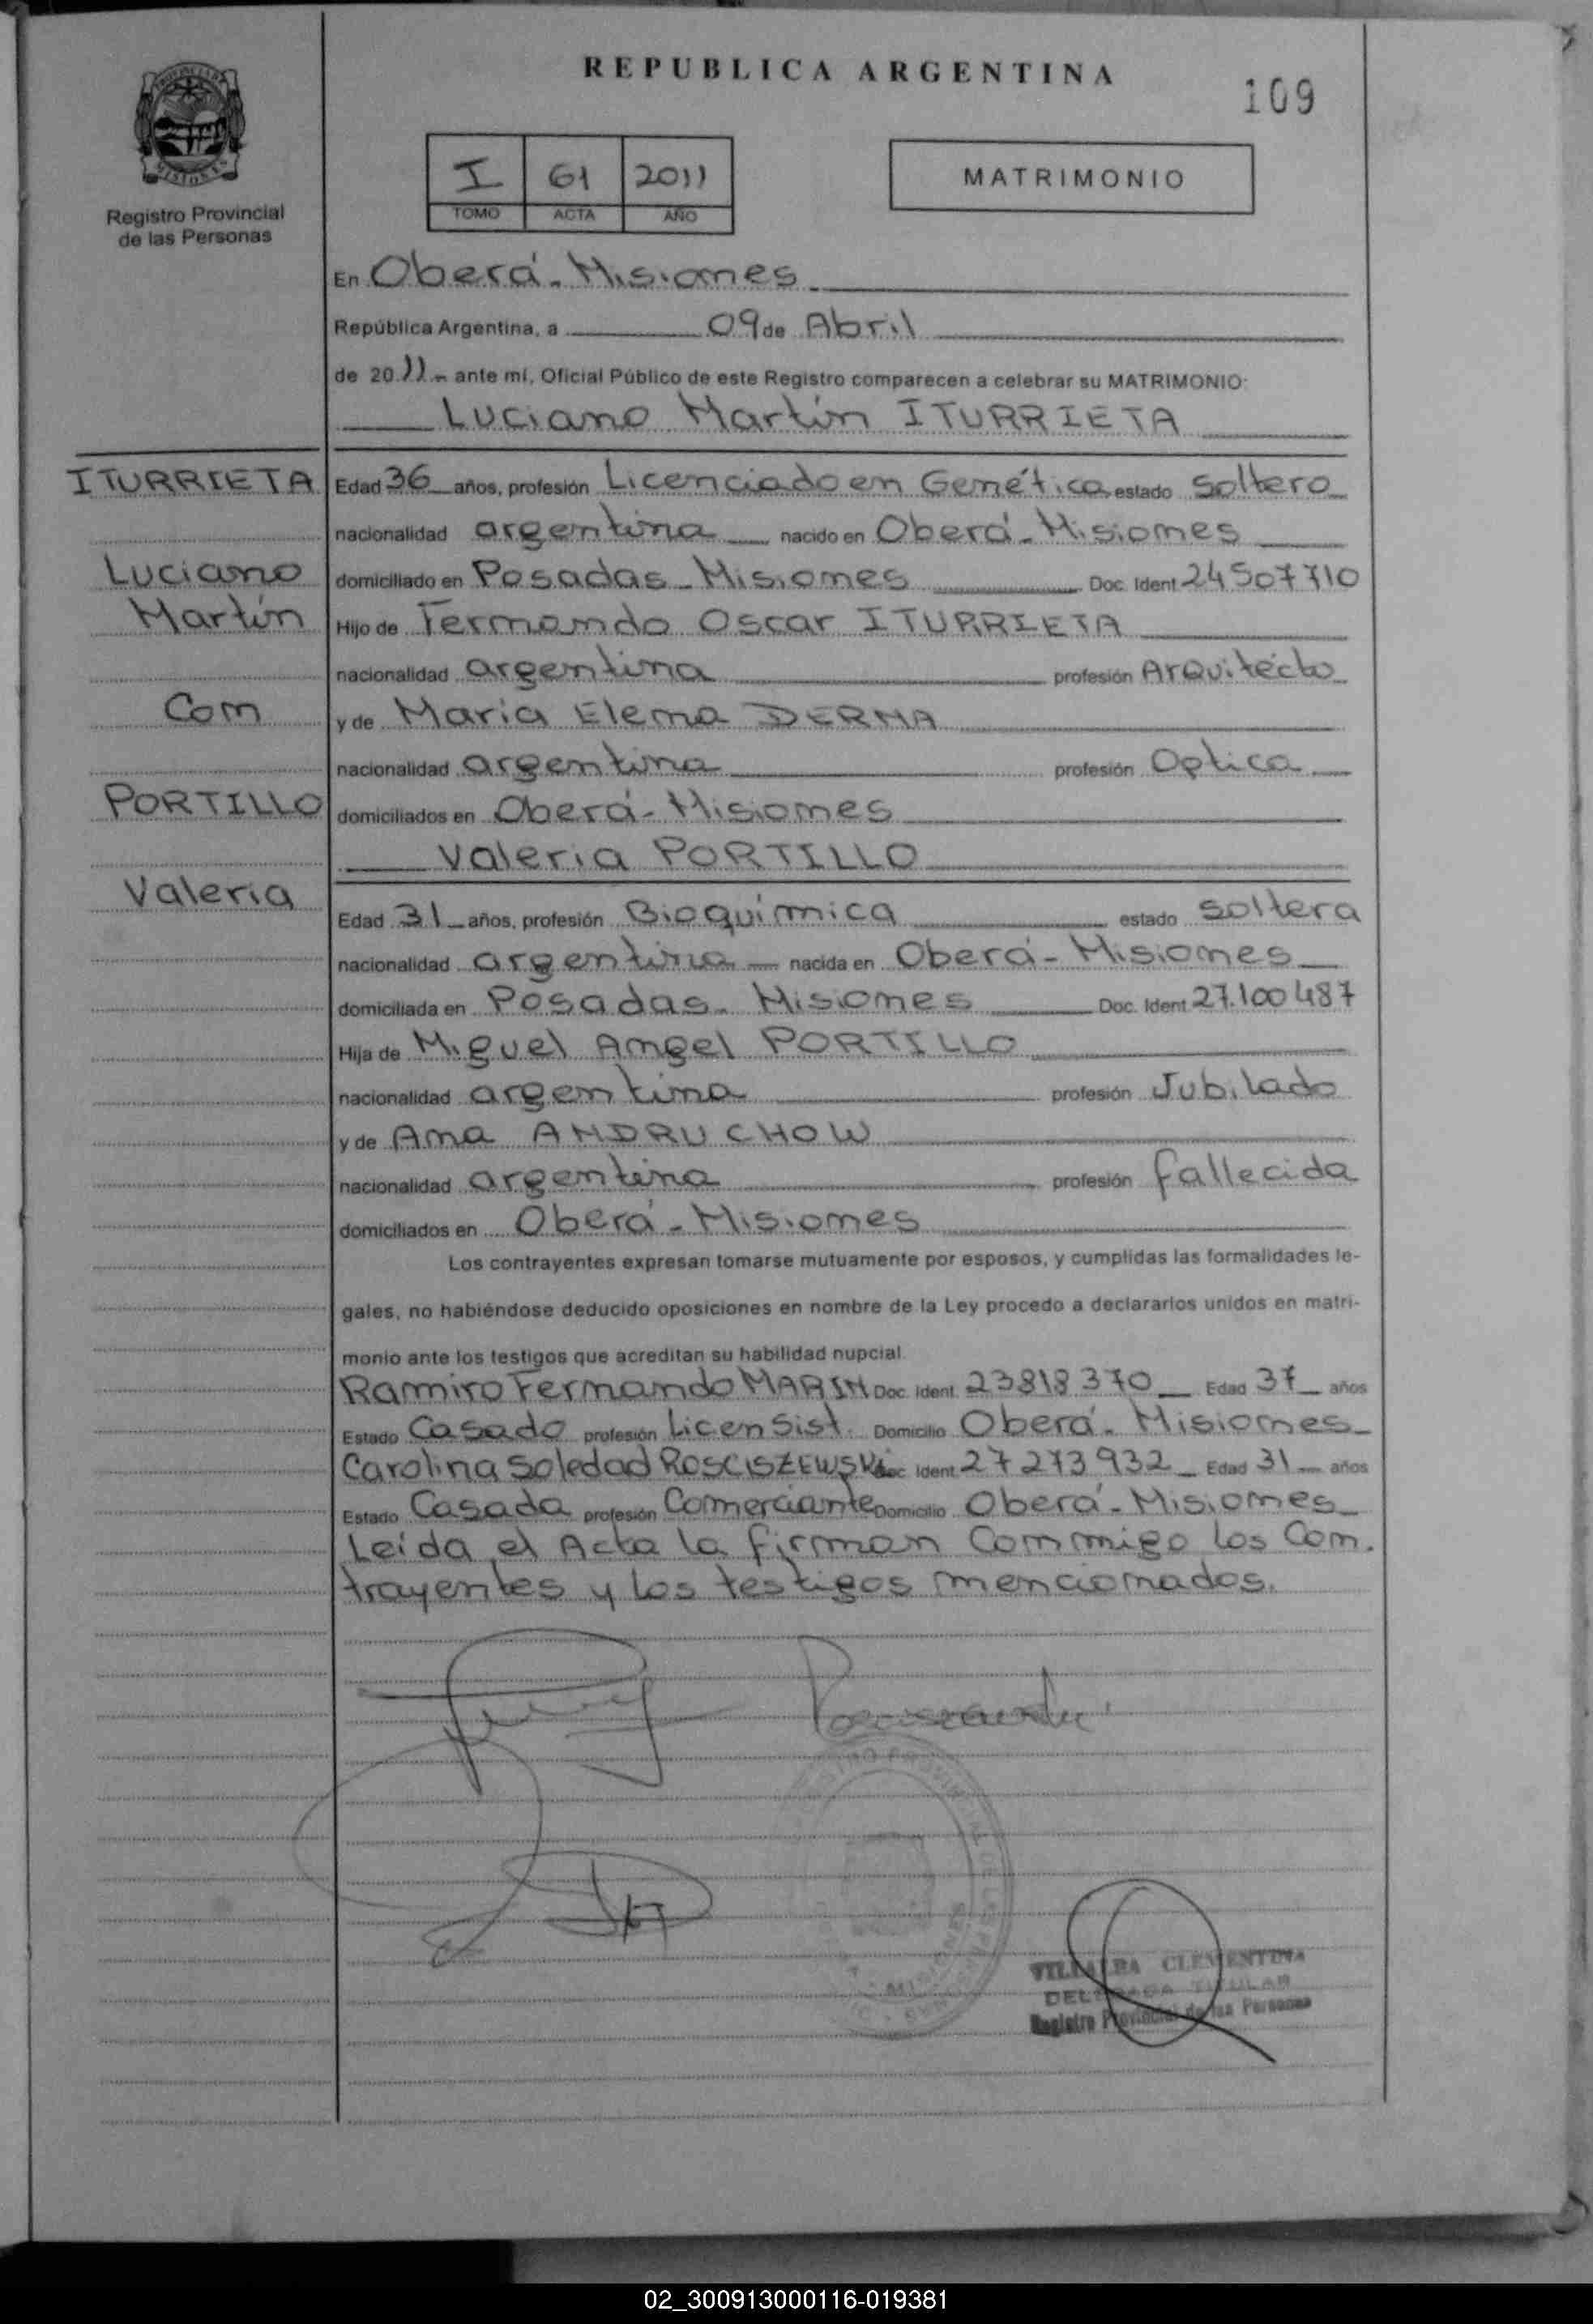 REPUBLICA ARGENTINA
109
PROVINCIA DE MISIONES
Registro Provincial
de las Personas
I 61 2011
TOMO ACTA AÑO
MATRIMONIO
En Oberá - Misiones
República Argentina, a 09 de Abril
de 2011 - ante mí, Oficial Público de este Registro comparecen a celebrar su MATRIMONIO:
Luciano Martín ITURRIETA
ITURRIETA
Luciano
Martín
Con
PORTILLO
Valeria
Edad 36 años, profesión Licenciado en Genética estado soltero
nacionalidad argentina nacido en Oberá - Misiones
domiciliado en Posadas - Misiones Doc. Ident 24507710
Hijo de Fernando Oscar ITURRIETA
nacionalidad argentina profesión Arquitecto
y de María Elena DERNA
nacionalidad argentina profesión Optica
domiciliados en Oberá - Misiones
Valeria PORTILLO
Edad 31 años, profesión Bioquímica estado soltera
nacionalidad argentina nacida en Oberá - Misiones
domiciliada en Posadas - Misiones Doc. Ident 27.100487
Hija de Miguel Angel PORTILLO
nacionalidad argentina profesión Jubilado
y de Ana ANDRUCHOW
nacionalidad argentina profesión fallecida
domiciliados en Oberá - Misiones
Los contrayentes expresan tomarse mutuamente por esposos, y cumplidas las formalidades le-
gales, no habiéndose deducido oposiciones en nombre de la Ley procedo a declararlos unidos en matri-
monio ante los testigos que acreditan su habilidad nupcial.
Ramiro Fernando MARIN Doc. Ident. 23818370 Edad 37 años
Estado Casado profesión Licen Sist. Domicilio Oberá - Misiones
Carolina Soledad ROSCISZEWSKi Doc. Ident 27273932 Edad 31 años
Estado Casada profesión Comerciante Domicilio Oberá - Misiones
Leída el Acta la firman Conmigo los Con.
trayentes y los testigos mencionados.
VILLALBA CLEMENTINA
DELEGADA TITULAR
Registro Provincial de las Personas
02_300913000116-019381